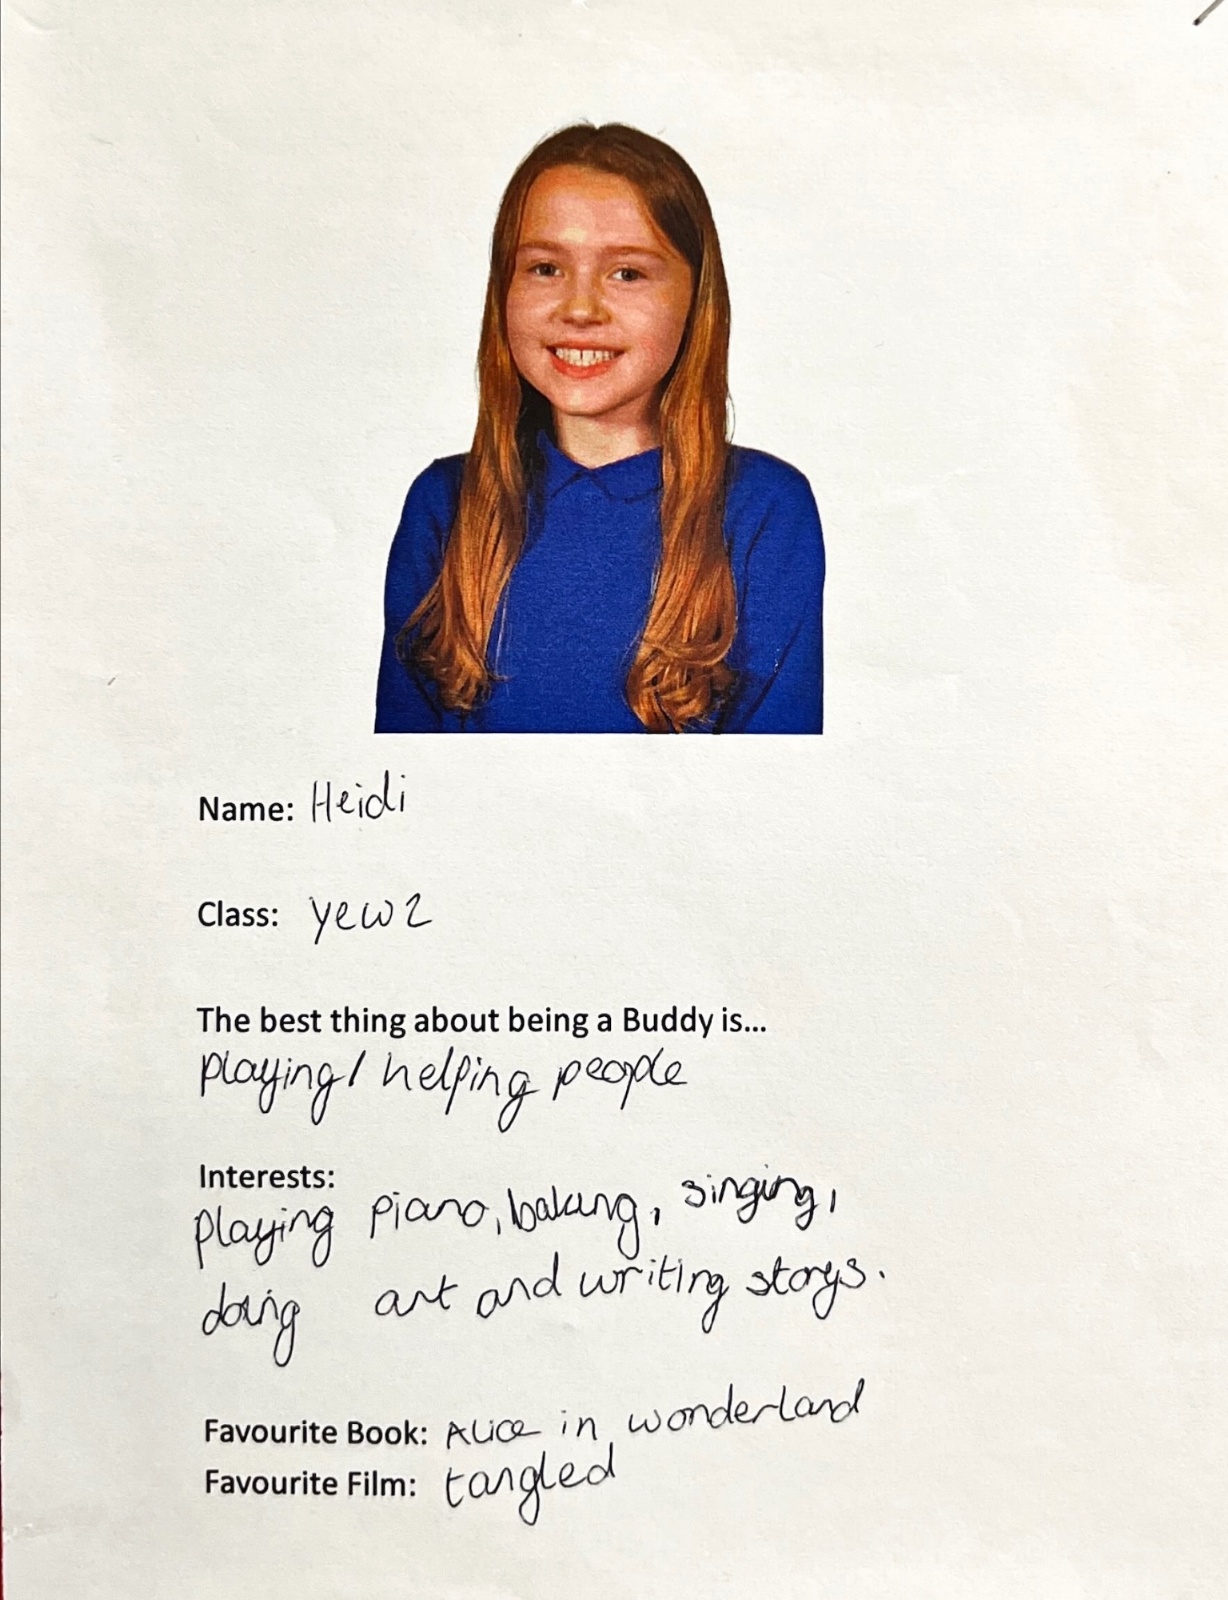 Name: Heidi
Class: yew2
The best thing about being a Buddy is...
playing/ helping people
Interests:
playing piano, baking, singing,
doing art and writing storys.
Favourite Book: Alice in wonderland
Favourite Film: tangled